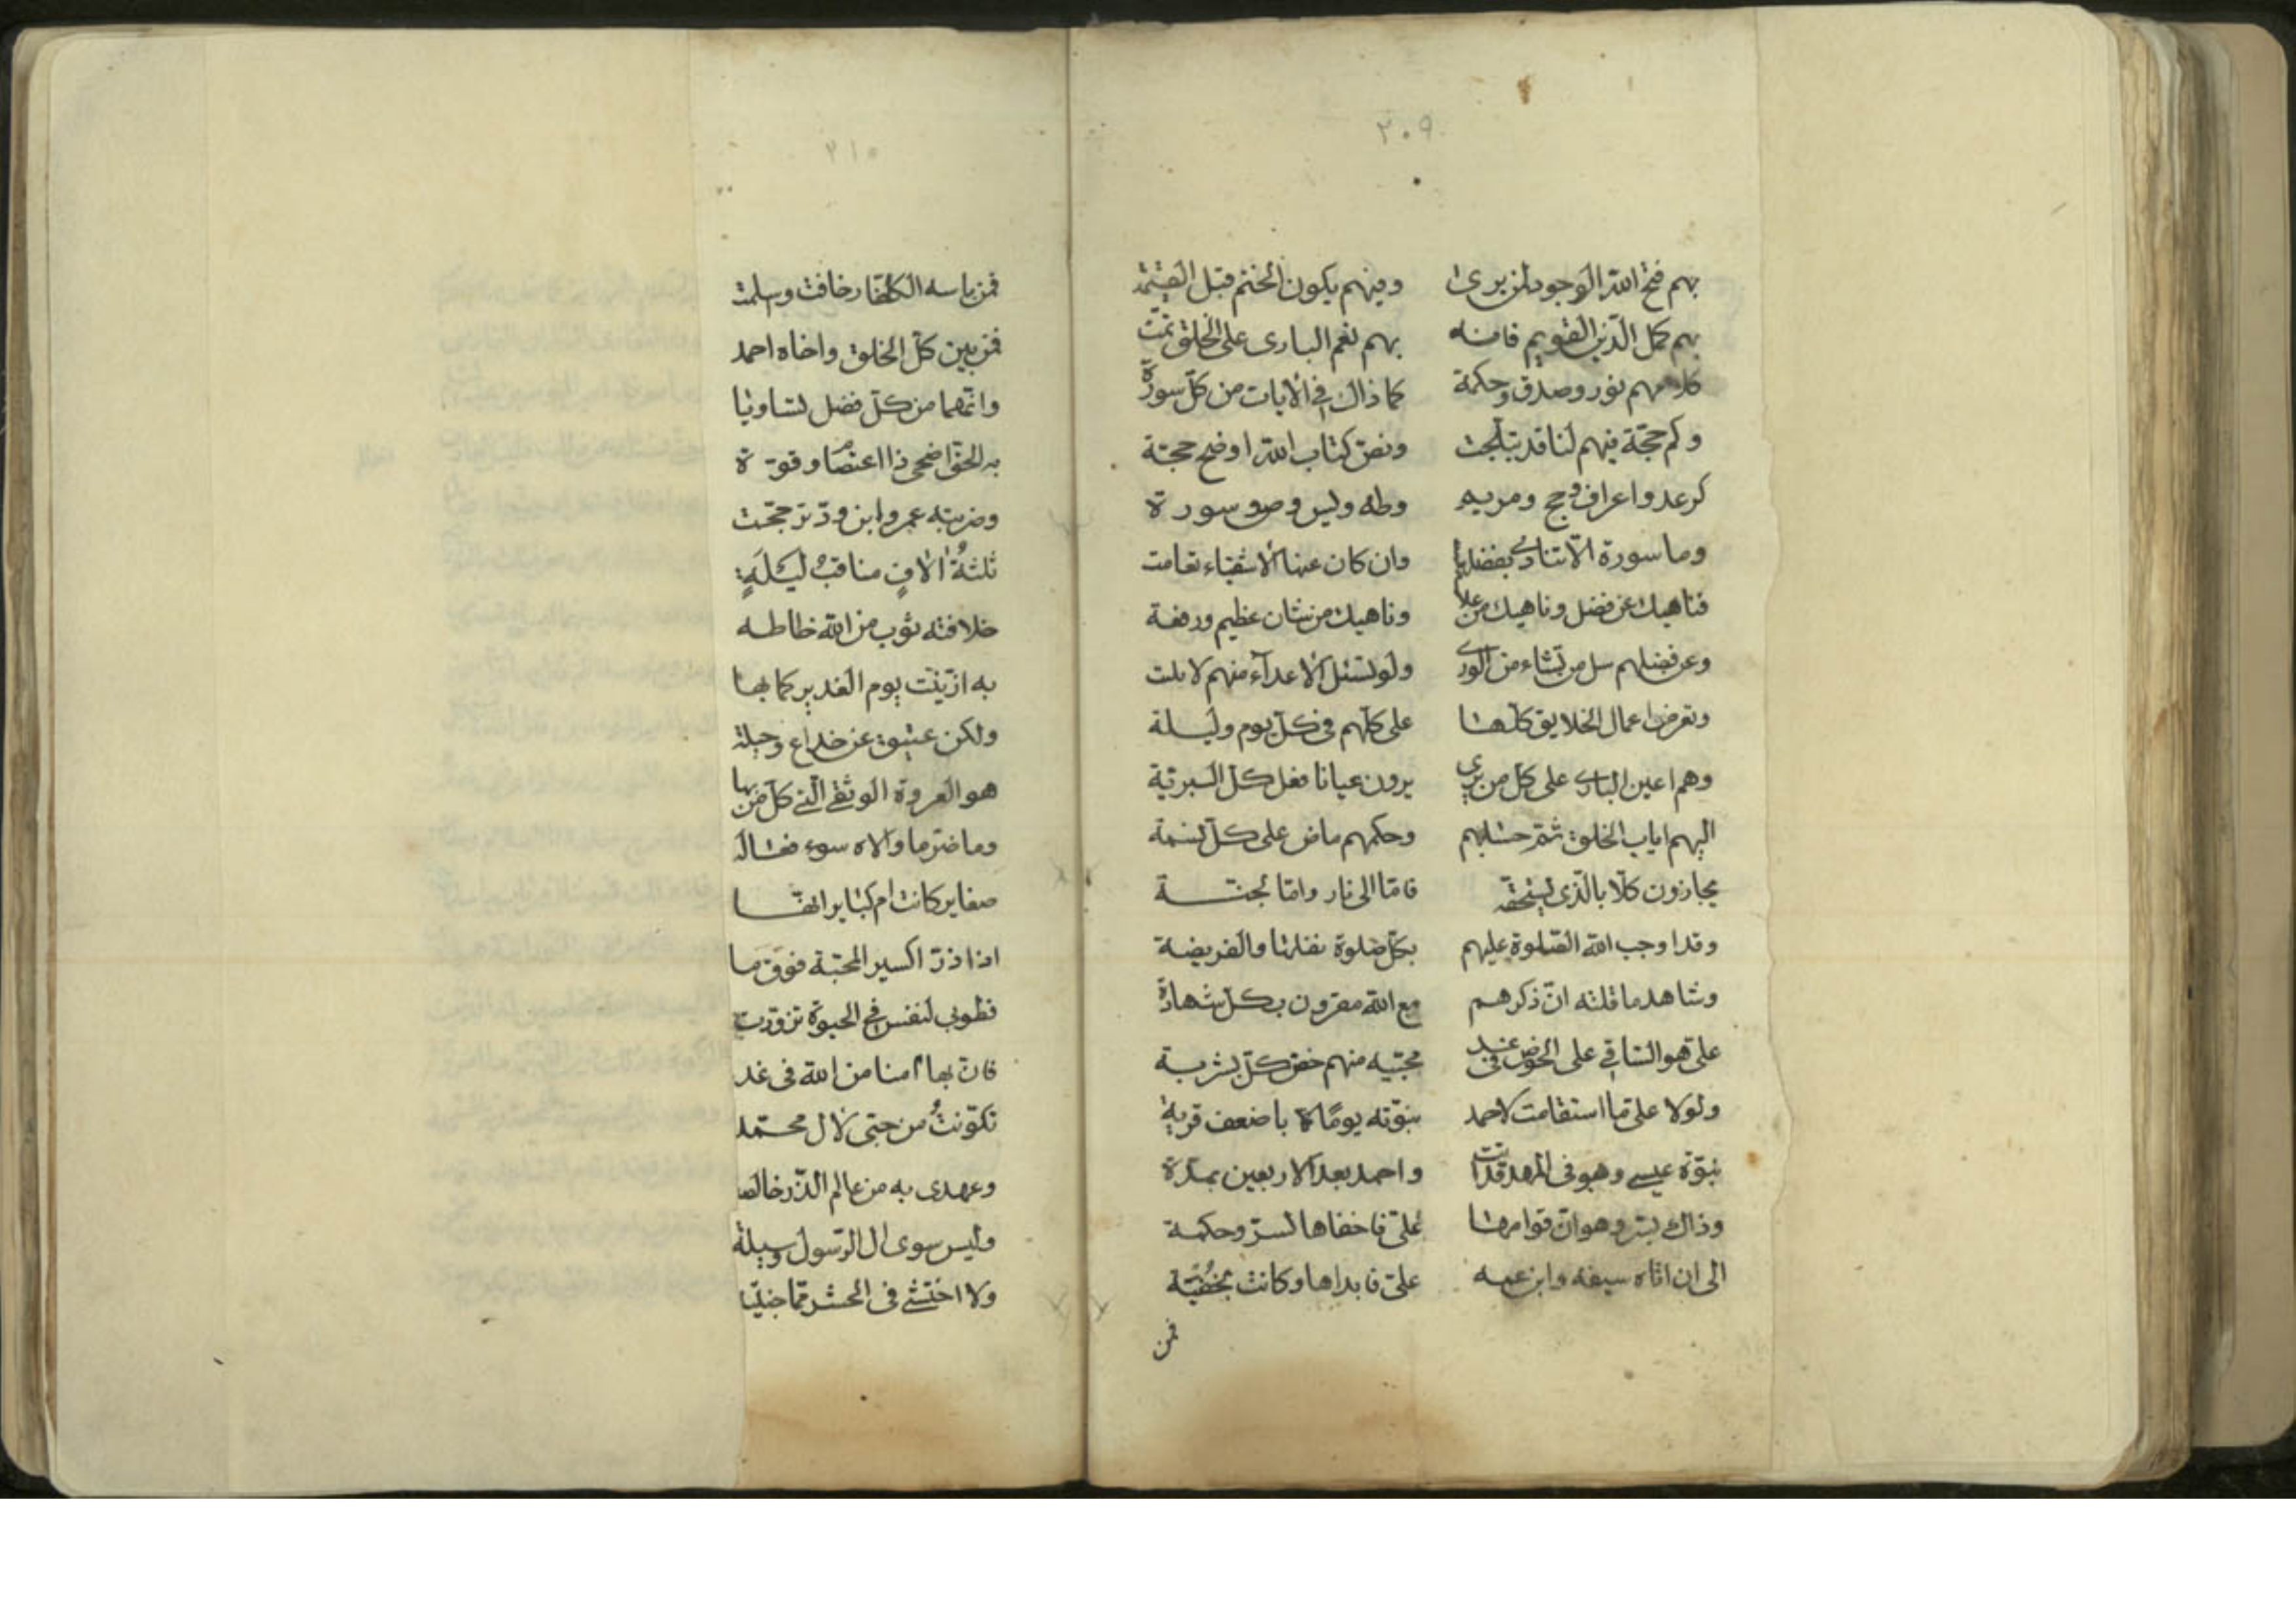 ٣٠٩
بهم فتح الله الوجود لمن برى وفيهم يكون الختم قبل
بهم كمل الدين القويم فانه بهم نعم البارى على الخلق تمّت
كلامهم نور وصدق وحكمة كما ذاك فى الايات من كلّ سورة
وكم حجّة فيهم لنا قد تبلّجت ونصّ كتاب الله اوضح حجّة
كرعد واعراف وحج ومريم وطه ويس وصٓ وسورة
وما سورة الّا تنادى بفضلهم وان كان عنها الاشقياء تعامت
فناهيك عن فضل وناهيك من علا وناهيك من شان عظيم ورفعة
وعن فضلهم سل من تشاء من الورى ولو تسئل الاعدآء منهم لابلت
وتعرض اعمال الخلايق كلّها على كلّهم فى كلّ يوم وليلة
وهم اعين البارى على كل من برى يرون عيانا فعل كلّ البريّة
اليهم اياب الخلق ثمّ حسابهم وحكمهم ماض على كلّ نسمة
يجازون كلّا بالّذى يستحقّه فامّا الى نار وامّا لجنّة
وقد اوجب الله الصّلوة عليهم بكلّ صلوة نفلها والفريضة
وشاهد ما قلته انّ ذكرهم مع الله مقرون بكلّ شهادة
علىّ هو السّاقى على الحوض فى غد محبّيه منهم خصّ كلّ بشربة
ولولا علىّ ما استقامت لاحمد نبوّته يومًا باضعف قرية
نبوّة عيسى وهو فى المهد قد اتت واحمد بعد الاربعين بمدّة
وذاك لسرّ وهو انّ قوامها علىّ فاخفاها لسرّ وحكمة
الى ان اتاه سيفه وابن عمه علىّ فابداها وكانت بخفيّة
فمن
٣١٠
فمن باسه الكفّار خافت وسلمت
فمن بين كلّ الخلق واخاه احمد
وانّهما من كلّ فضل تساويا
به الحقّ اضحى ذا اعتصام وقوّة
وضربته عمرو ابن ودّ ترجّحت
ثلثةُ الافٍ مناقبُ ليلَةٍ
خلافته ثوب من الله خاطه
به ازيّنت يوم الغدير كما بها
ولكن عتيق عن خداع وحيلة
هو العروة الوثقى الّتى كل من بها
وما ضرّ ما والاه سوء فعاله
صغاير كانت ام كباير انّها
اذا ذرّ اكسير المحبّة فوق ما
فطوبى لنفس فى الحيوة تزوّدت
فانّ بها امنا من الله فى غد
تكوّنتُ من حبّى لال محمّد
وعهدى به من عالم الذّر خالصا
وليس سوى ال الرّسول وسيلة
ولا اختشى فى الحشر ممّا جنيته